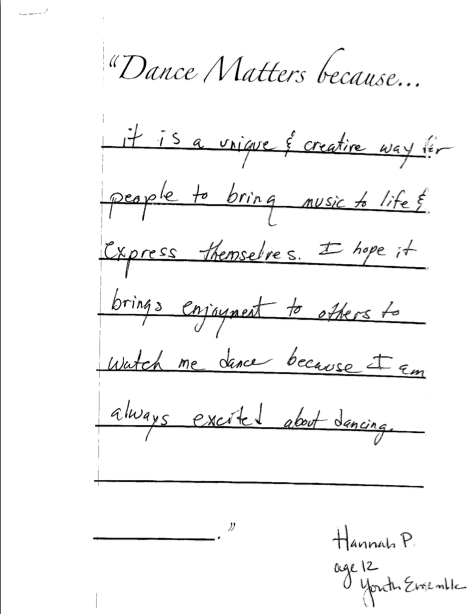 "Dance Matters because...
it is a unique & creative way for
people to bring music to life &
express themselves. I hope it
brings enjoyment to others to
watch me dance because I am
always excited about dancing.
."
Hannah P.
age 12
Youth Ensemble